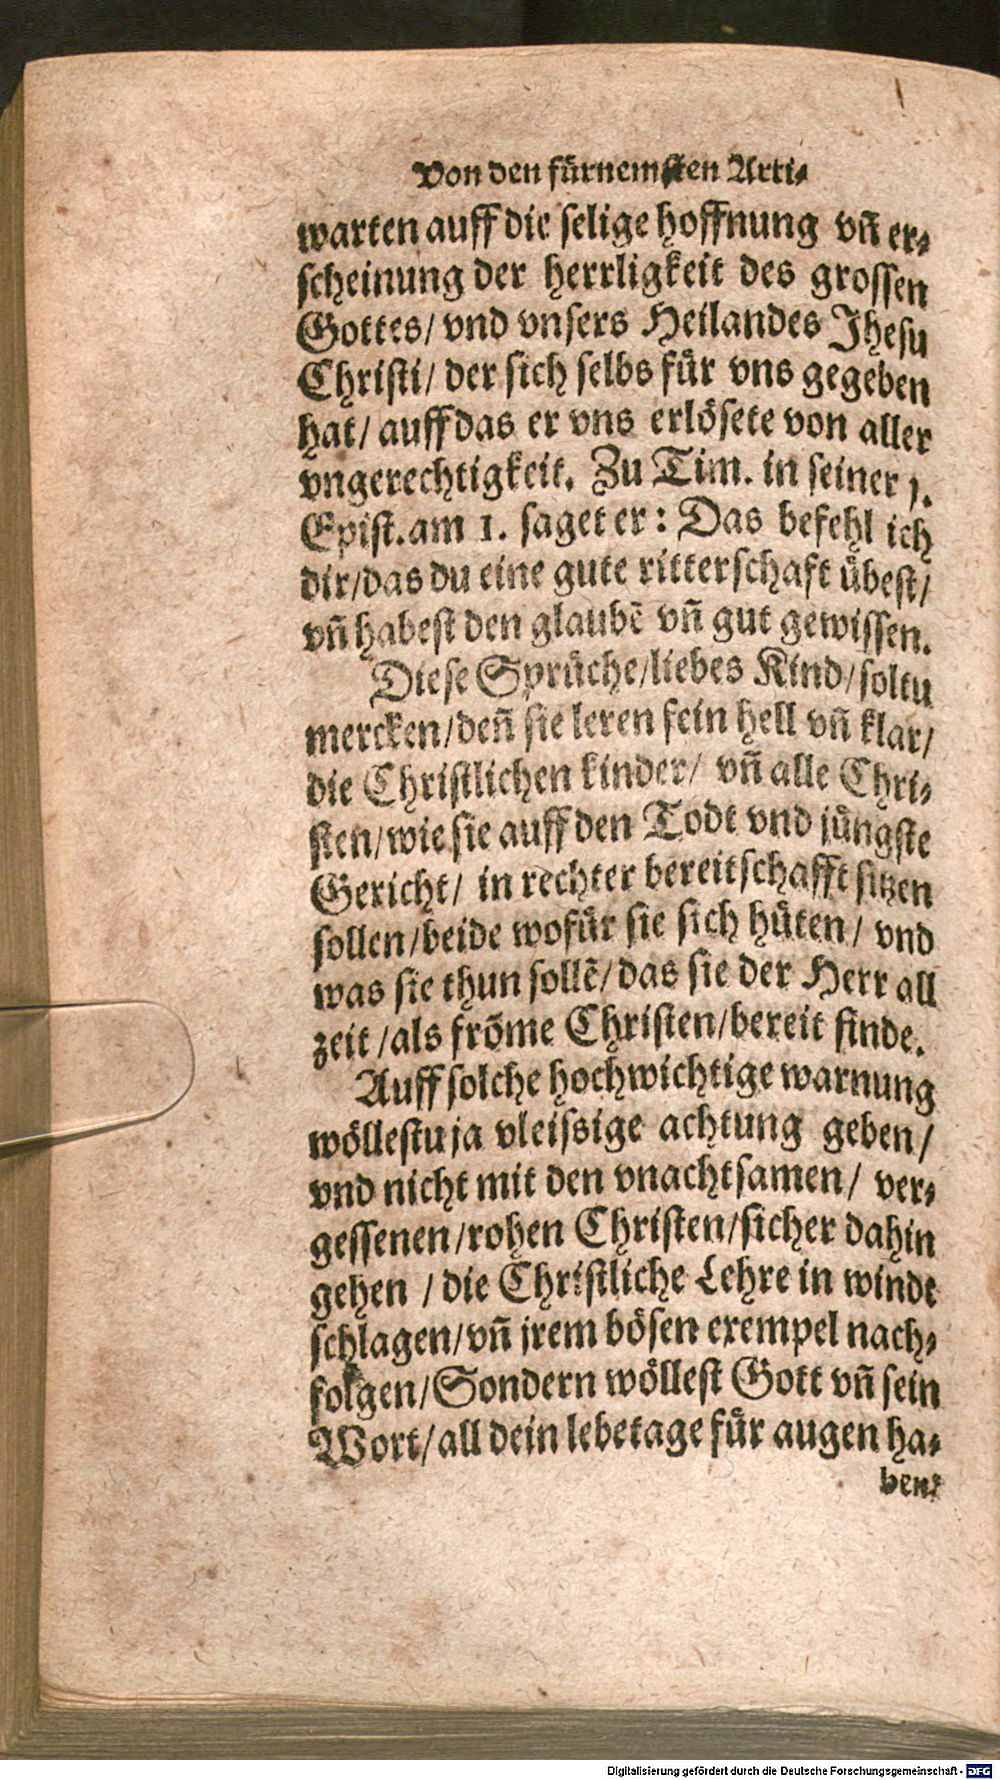 Von den fürnemsten Arti⸗
warten auff die selige hoffnung vñ er⸗
scheinung der herrligkeit des grossen
Gottes/ vnd vnsers Heilandes Jhesu
Christi/ der sich selbs für vns gegeben
hat/ auff das er vns erlösete von aller
vngerechtigkeit. Zu Tim. in seiner j.
Epist. am 1. saget er: Das befehl ich
dir/das du eine gute ritterschaft übest/
vñ habest den glaubē vñ gut gewissen.
Diese Sprüche/liebes Kind/soltu
mercken/deñ sie leren fein hell vñ klar/
die Christlichen kinder/ vñ alle Chri⸗
sten/wie sie auff den Todt vnd jüngste
Gericht/ in rechter bereitschafft sitzen
sollen/beide wofür sie sich hüten/ vnd
was sie thun sollē/das sie der Herr all
zeit/als frõme Christen/bereit finde.
Auff solche hochwichtige warnung
wöllestu ja vleissige achtung geben/
vnd nicht mit den vnachtsamen/ ver⸗
gessenen/rohen Christen/sicher dahin
gehen / die Christliche Lehre in winde
schlagen/vñ jrem bösen exempel nach⸗
folgen/Sondern wöllest Gott vñ sein
Wort/all dein lebetage für augen ha⸗
ben:
Digitalisierung gefördert durch die Deutsche Forschungsgemeinschaft - DFG